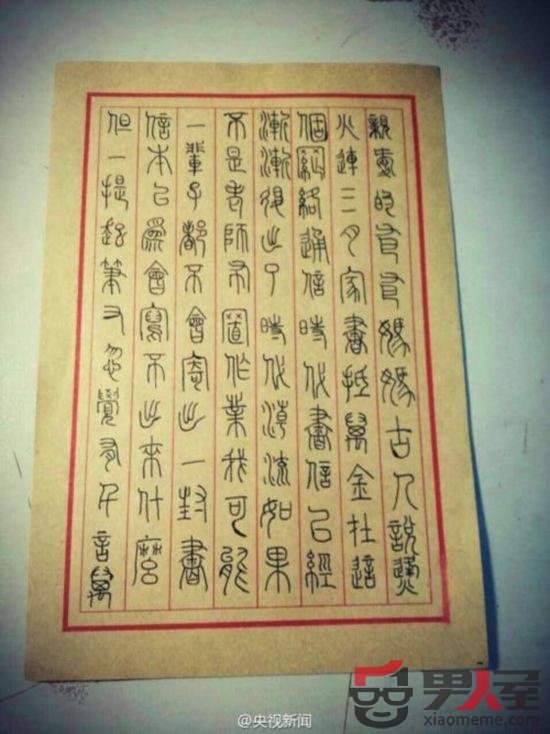 親愛的爸爸媽媽古人說烽
火連三月家書抵萬金在這
個網絡通信時代書信已經
漸漸退出了時代潮流如果
不是老師布置作業我可能
一輩子都不會寄出一封書
信本以為會寫不出來什麼
但一提起筆又忽覺有千言萬
@央视新闻
男人屋
xiaomeme.com